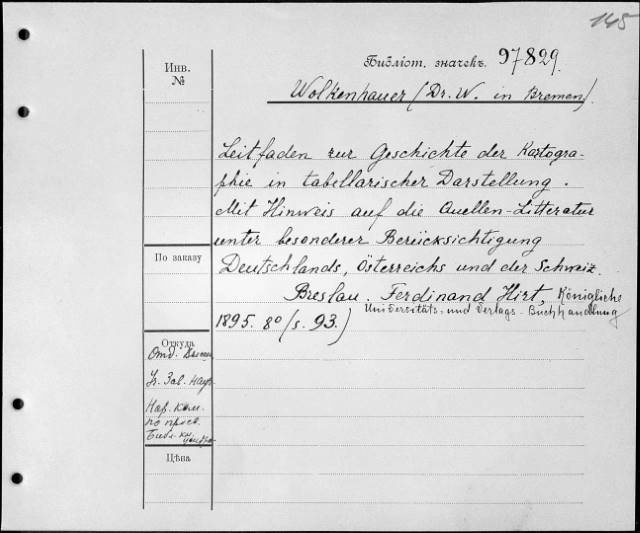 145
Библіот. значекъ 97829.
Инв.
№
Wolkenhauer (Dr. W. in Bremen).
Leitfaden zur Geschichte der Kartogra-
phie in tabellarischer Darstellung.
Mit Hinweis auf die Quellen-Litteratur
unter besonderer Berücksichtigung
По заказу
Deutschlands, Österreichs und der Schweiz.
Breslau. Ferdinand Hirt, Königliche
Universitäts- und Verlags-Buchhandlung
1895. 8° (s. 93.)
Откуда
Отд.
Зав.
Нар. ком.
по просв.
Библ.
Цѣна